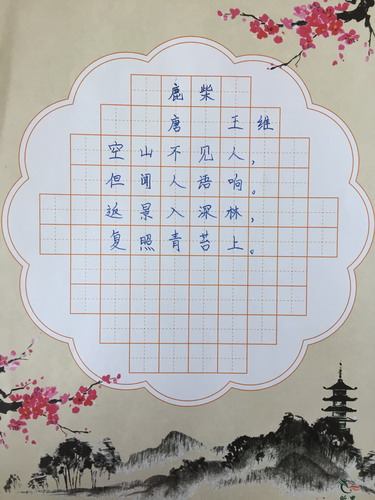 鹿柴
唐 王维
空山不见人，
但闻人语响。
返景入深林，
复照青苔上。